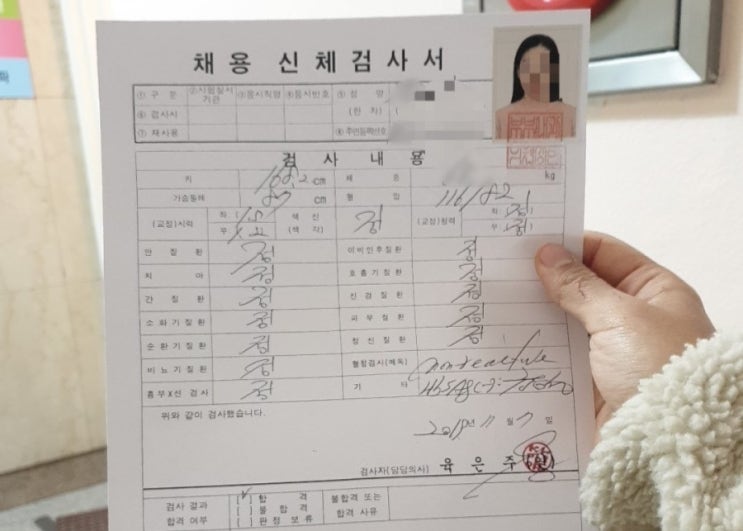 채 용 신 체 검 사 서
① 구 분 ② 기관 ③ 응시직명 ④ 응시번호 ⑤ 성 명
⑥ 검사서 (한 자) (
⑦ 재사용 ⑧ 주민등록번호
검 사 내 용
키 cm 체 중 kg
가슴둘레 cm 혈 압 116/82
(교정)시력 좌 ( 1.5 색 신 정 (교정)청력 좌 (정)
우 ( 1.2 (색 각) 우 (정)
안 질 환 정 이비인후질환 정
치 아 정 호 흡 기 질 환 정
간 질 환 정 신 경 질 환 정
소 화 기 질 환 정 피 부 질 환 정
순 환 기 질 환 정 정 신 질 환 정
비 뇨 기 질 환 정 혈청검사(매독) nonreactive
흉부X선 검사 정 기 타 HBsAg(-)
위와 같이 검사했습니다.
년 11 월 7 일
검사자(담당의사) 육 은 주
검사 결과 [✓] 합 격 불합격 또는
합격 여부 [ ] 불 합 격 합격 사유
[ ] 판 정 보 류